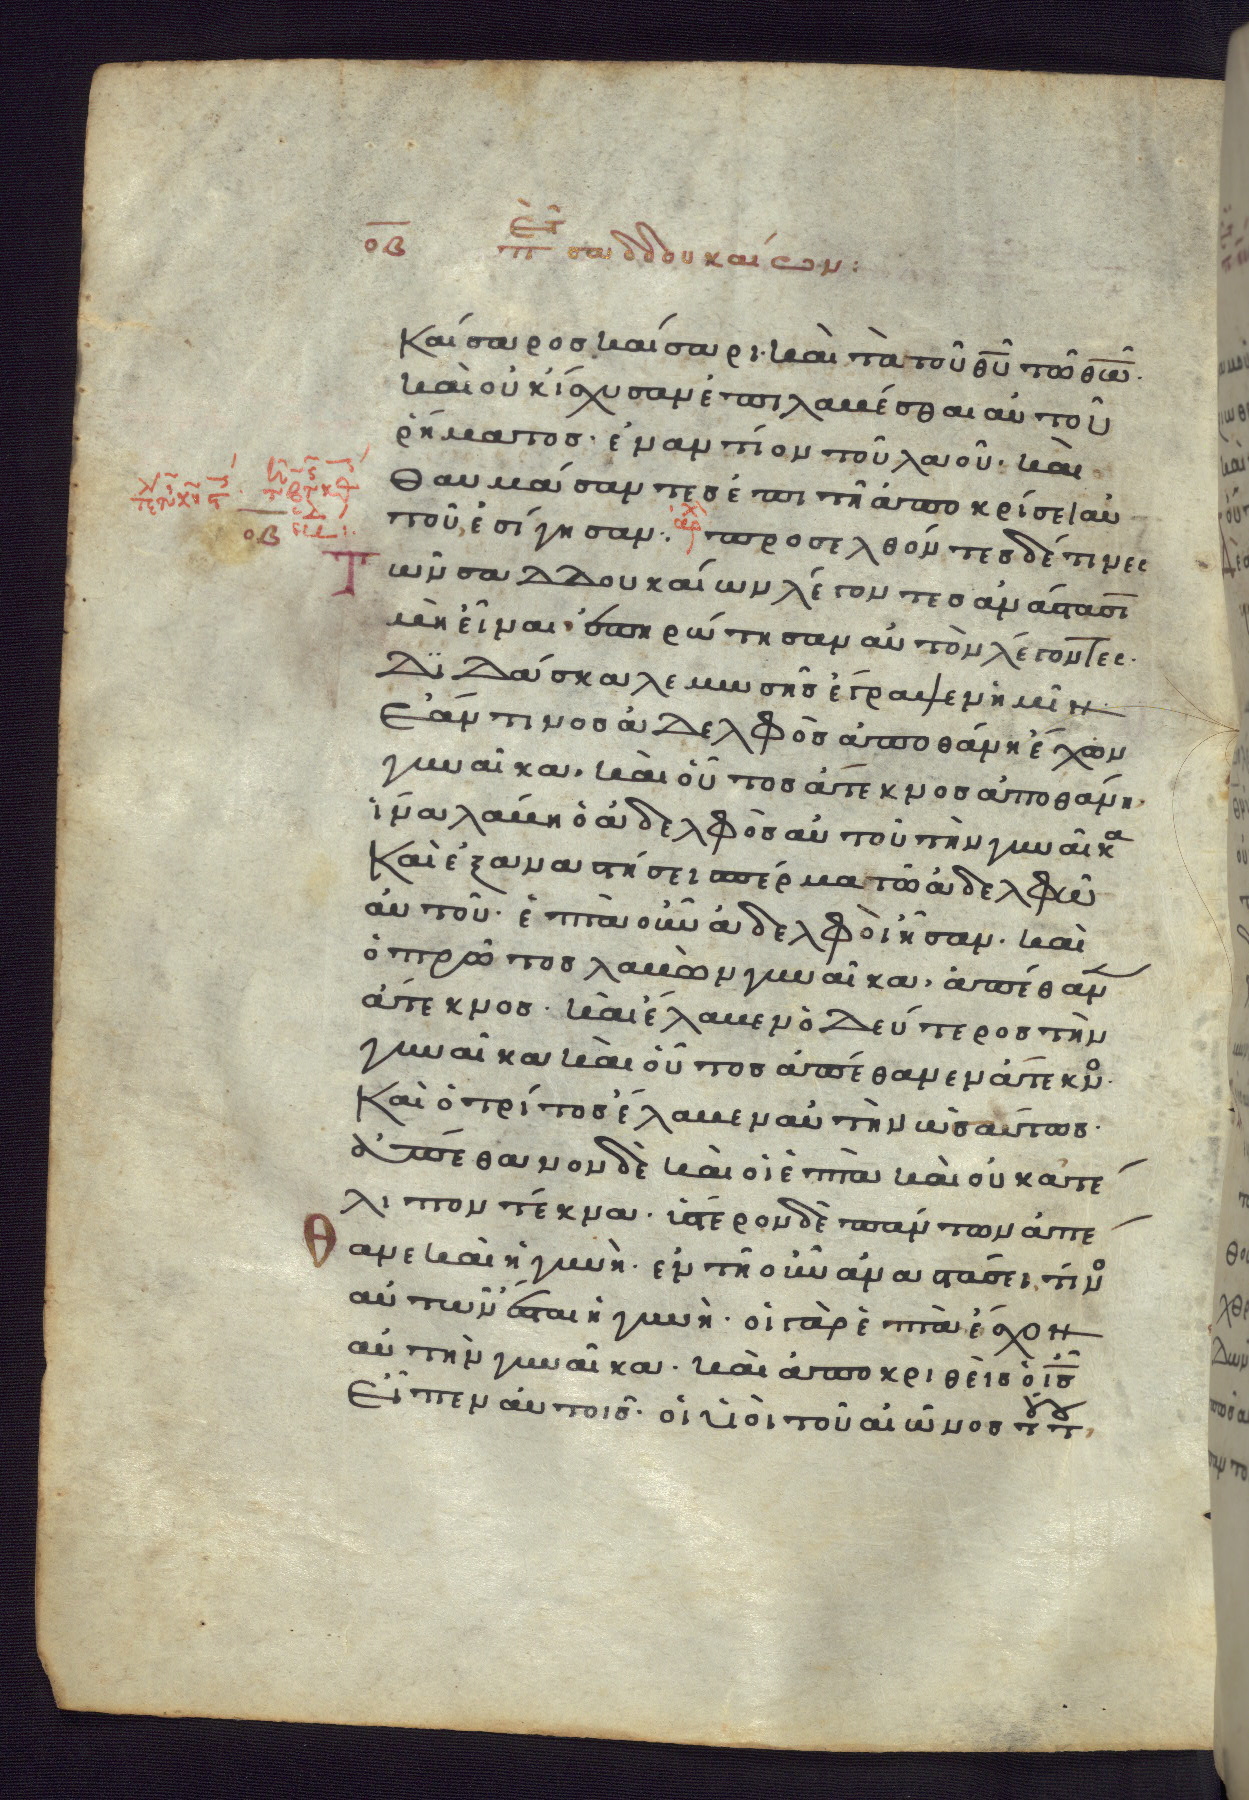 οβ ἐπ σαδδουκαίων:
Καίσαρος καίσαρι· καὶ τὰ τοῦ θῦ τῶ θῶ·
καὶ οὐκ ἴσχυσαν ἐπιλαβέσθαι αὐτοῦ
ῥήματος· ἐναντίον τοῦ λαοῦ· καὶ
θαυμάσαντες ἐπὶ τῆ ἀποκρίσει αὐ
τοῦ, ἐσίγησαν·. προσελθόντες δέ τινες
οβ
Τῶν σαδδουκαίων λέγοντες ἀνάστασι
μὴ εἶναι· ἐπηρώτησαν αὐτὸν λέγοντες·
Διδάσκαλε μωσῆς ἔγραψεν ἡμῖν
Ἐάν τινος ἀδελφὸς ἀποθάνη ἔχων
γυναῖκα, καὶ οὗτος ἄτεκνος ἀποθάνη,
ἵνα λάβη ὁ ἀδελφὸς αὐτοῦ τὴν γυναῖκα
Καὶ ἐξαναστήσει σπέρμα τῶ ἀδελφῶ
αὐτοῦ· ἑπτὰ οὖν ἀδελφοὶ ἦσαν· καὶ
ὁ πρῶτος λαβὼν γυναῖκα, ἀπέθαν
ἄτεκνος· καὶ ἔλαβεν ὁ δεύτερος τὴν
γυναῖκα καὶ οὗτος ἀπέθανεν ἄτεκνο·
Καὶ ὁ τρίτος ἔλαβεν αὐτὴν ὡσαύτως·
ἀπέθανον δὲ καὶ οἱ ἑπτὰ καὶ οὐ κατέ
λιπον τέκνα· ὕστερον δὲ πάντων ἀπέ
Θανε καὶ ἡ γυνὴ· ἐν τῆ οὖν ἀναστάσει, τίνο
αὐτῶν ἔσται ἡ γυνὴ· οἱ γὰρ ἑπτὰ ἔσχον
αὐτὴν γυναῖκα· καὶ ἀποκριθεὶς ὁ ἰς
Εἶπεν αὐτοῖς· οἱ υἱοὶ τοῦ αἰῶνος τούτου,